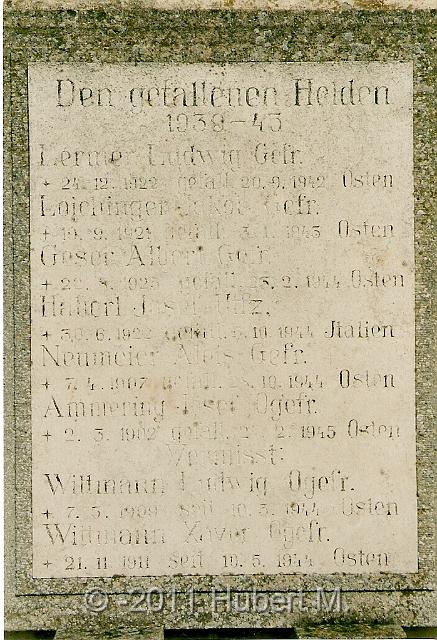 Den gefallenen Helden
1939-45
Lermer Ludwig Gefr.
+ 24. 12. 1922 gefall. 20. 9. 1942 Osten
Loichinger Jakob Gefr.
+ 19. 9. 1924 gefall. 3. 1. 1943 Osten
Geser Albert Gefr.
+ 22. 1925 gefall. 23. 2. 1944 Osten
Haberl Josef Uffz.
+ 30. 6. 1922 gefall. 10. 1944 Italien
Neumeier Alois Gefr.
+ 7. 4. 1907 gefall. 10. 1944 Osten
Ammering Josef Ogefr.
+ 2. 3. 1902 gefall. 2. 1945 Osten
Vermisst:
Wittmann Ludwig Ogefr.
+ 7. 5. 1909 seit 10. 5. 1944 Osten
Wittmann Xaver Ogefr.
+ 21. 11. 1911 seit 10. 5. 1944 Osten
© -2011 Hubert M.